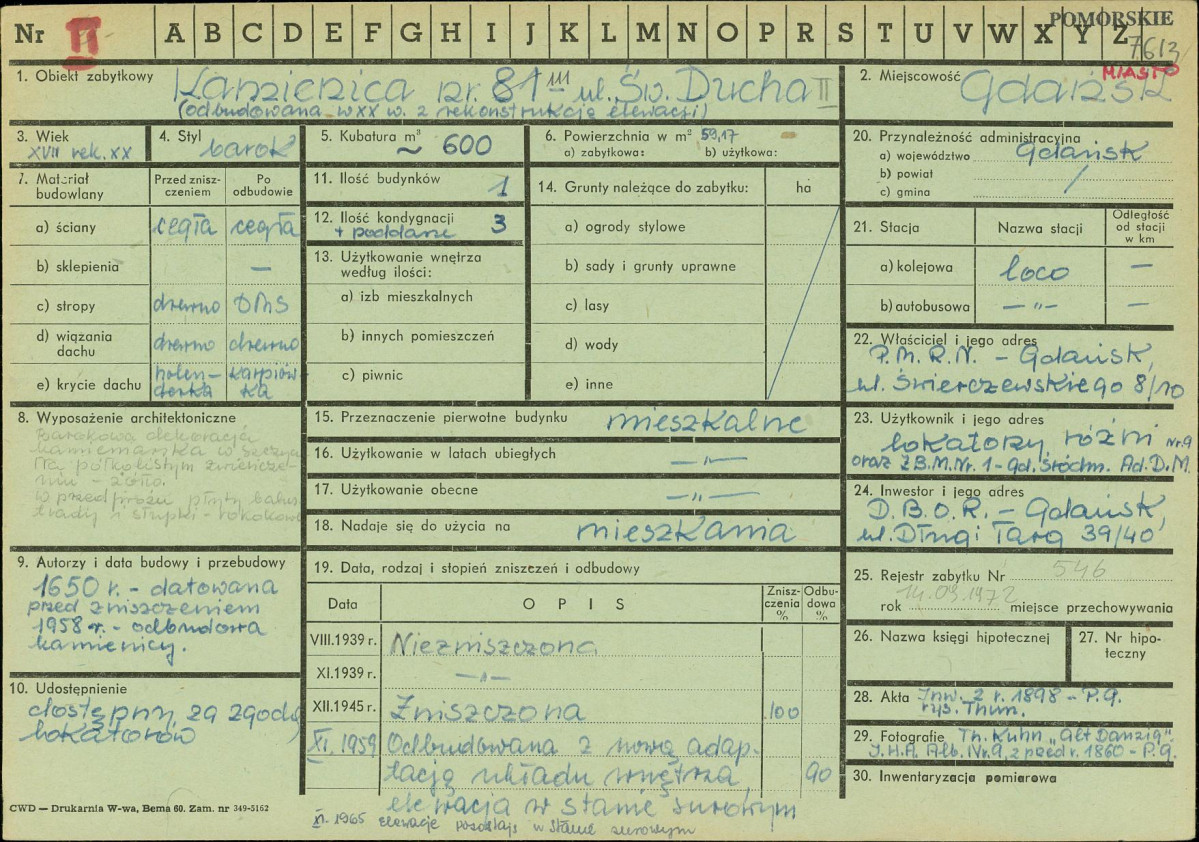 Nr II A B C D E F G H I J K L M N O P R S T U V W X Y Z
POMORSKIE
7613
MIASTO
1. Obiekt zabytkowy Kamienica nr. 81 III ul. Św. Ducha II
(odbudowana w XX w. z rekonstrukcją elewacji)
2. Miejscowość Gdańsk
3. Wiek
XVII rek. XX
4. Styl
barok
5. Kubatura m³
~ 600
6. Powierzchnia w m² 59,17
a) zabytkowa: b) użytkowa:
7. Materiał budowlany
Przed znisz-
czeniem
Po
odbudowie
a) ściany cegła cegła
b) sklepienia —
c) stropy drewno DMS
d) wiązania
dachu drewno drewno
e) krycie dachu holen-
derka karpiów-
ka
8. Wyposażenie architektoniczne
Barokowa dekoracja
kamieniarska w szczy-
tu półkolistym zwieńcze-
niu
W przedprożu płyty balus-
trady i słupki - rokokowe
9. Autorzy i data budowy i przebudowy
1650 r. - datowana
przed zniszczeniem
1958 r. - odbudowa
kamienicy.
10. Udostępnienie
dostępny za zgodą
lokatorów
11. Ilość budynków 1
12. Ilość kondygnacji 3
+ poddasze
13. Użytkowanie wnętrza
według ilości:
a) izb mieszkalnych
b) innych pomieszczeń
c) piwnic
14. Grunty należące do zabytku: ha
a) ogrody stylowe
b) sady i grunty uprawne
c) lasy
d) wody
e) inne
15. Przeznaczenie pierwotne budynku mieszkalne
16. Użytkowanie w latach ubiegłych —"—
17. Użytkowanie obecne —"—
18. Nadaje się do użycia na mieszkania
19. Data, rodzaj i stopień zniszczeń i odbudowy
Data OPIS Znisz-
czenia
% Odbu-
dowa
%
VIII.1939 r. Niezniszczona
XI.1939 r. —"—
XII.1945 r. Zniszczona 100
XI. 1959 Odbudowana z nową adap-
tacją układu wnętrza, 90
elewacja w stanie surowym
XI. 1965 elewacje pozostają w stanie surowym
20. Przynależność administracyjna
a) województwo Gdańsk
b) powiat
c) gmina /
21. Stacja Nazwa stacji Odległość
od stacji
w km
a) kolejowa loco —
b) autobusowa —"— —
22. Właściciel i jego adres
P.M.R.N. - Gdańsk,
ul. Świerczewskiego 8/10
23. Użytkownik i jego adres
lokatorzy różni
oraz Z.B.M. Nr. 1 - Gd. Śródm. Ad.D.M. nr 9
24. Inwestor i jego adres
D.B.O.R. - Gdańsk,
ul. Długi Targ 39/40
25. Rejestr zabytku Nr 546
rok 14.09.1972 miejsce przechowywania
26. Nazwa księgi hipotecznej
27. Nr hipo-
teczny
28. Akta Inw. z r. 1898 - P.G.
rys. Thum.
29. Fotografie Th. Kuhn "Alt Danzig"
I.H.A. Alb. Nr. 9, z przed r. 1860 - P.G.
30. Inwentaryzacja pomiarowa
CWD — Drukarnia W-wa, Bema 60. Zam. nr 349-5162